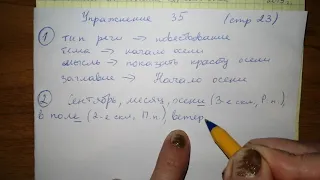 Упражнение 35 (стр 23)
① тип речи → повествование
тема → начало осени
мысль → показать красоту осени
заглавие → Начало осени
② Сентябрь, месяц, осени (3-е скл, Р.п.),
в поле (2-е скл, П.п), ветер